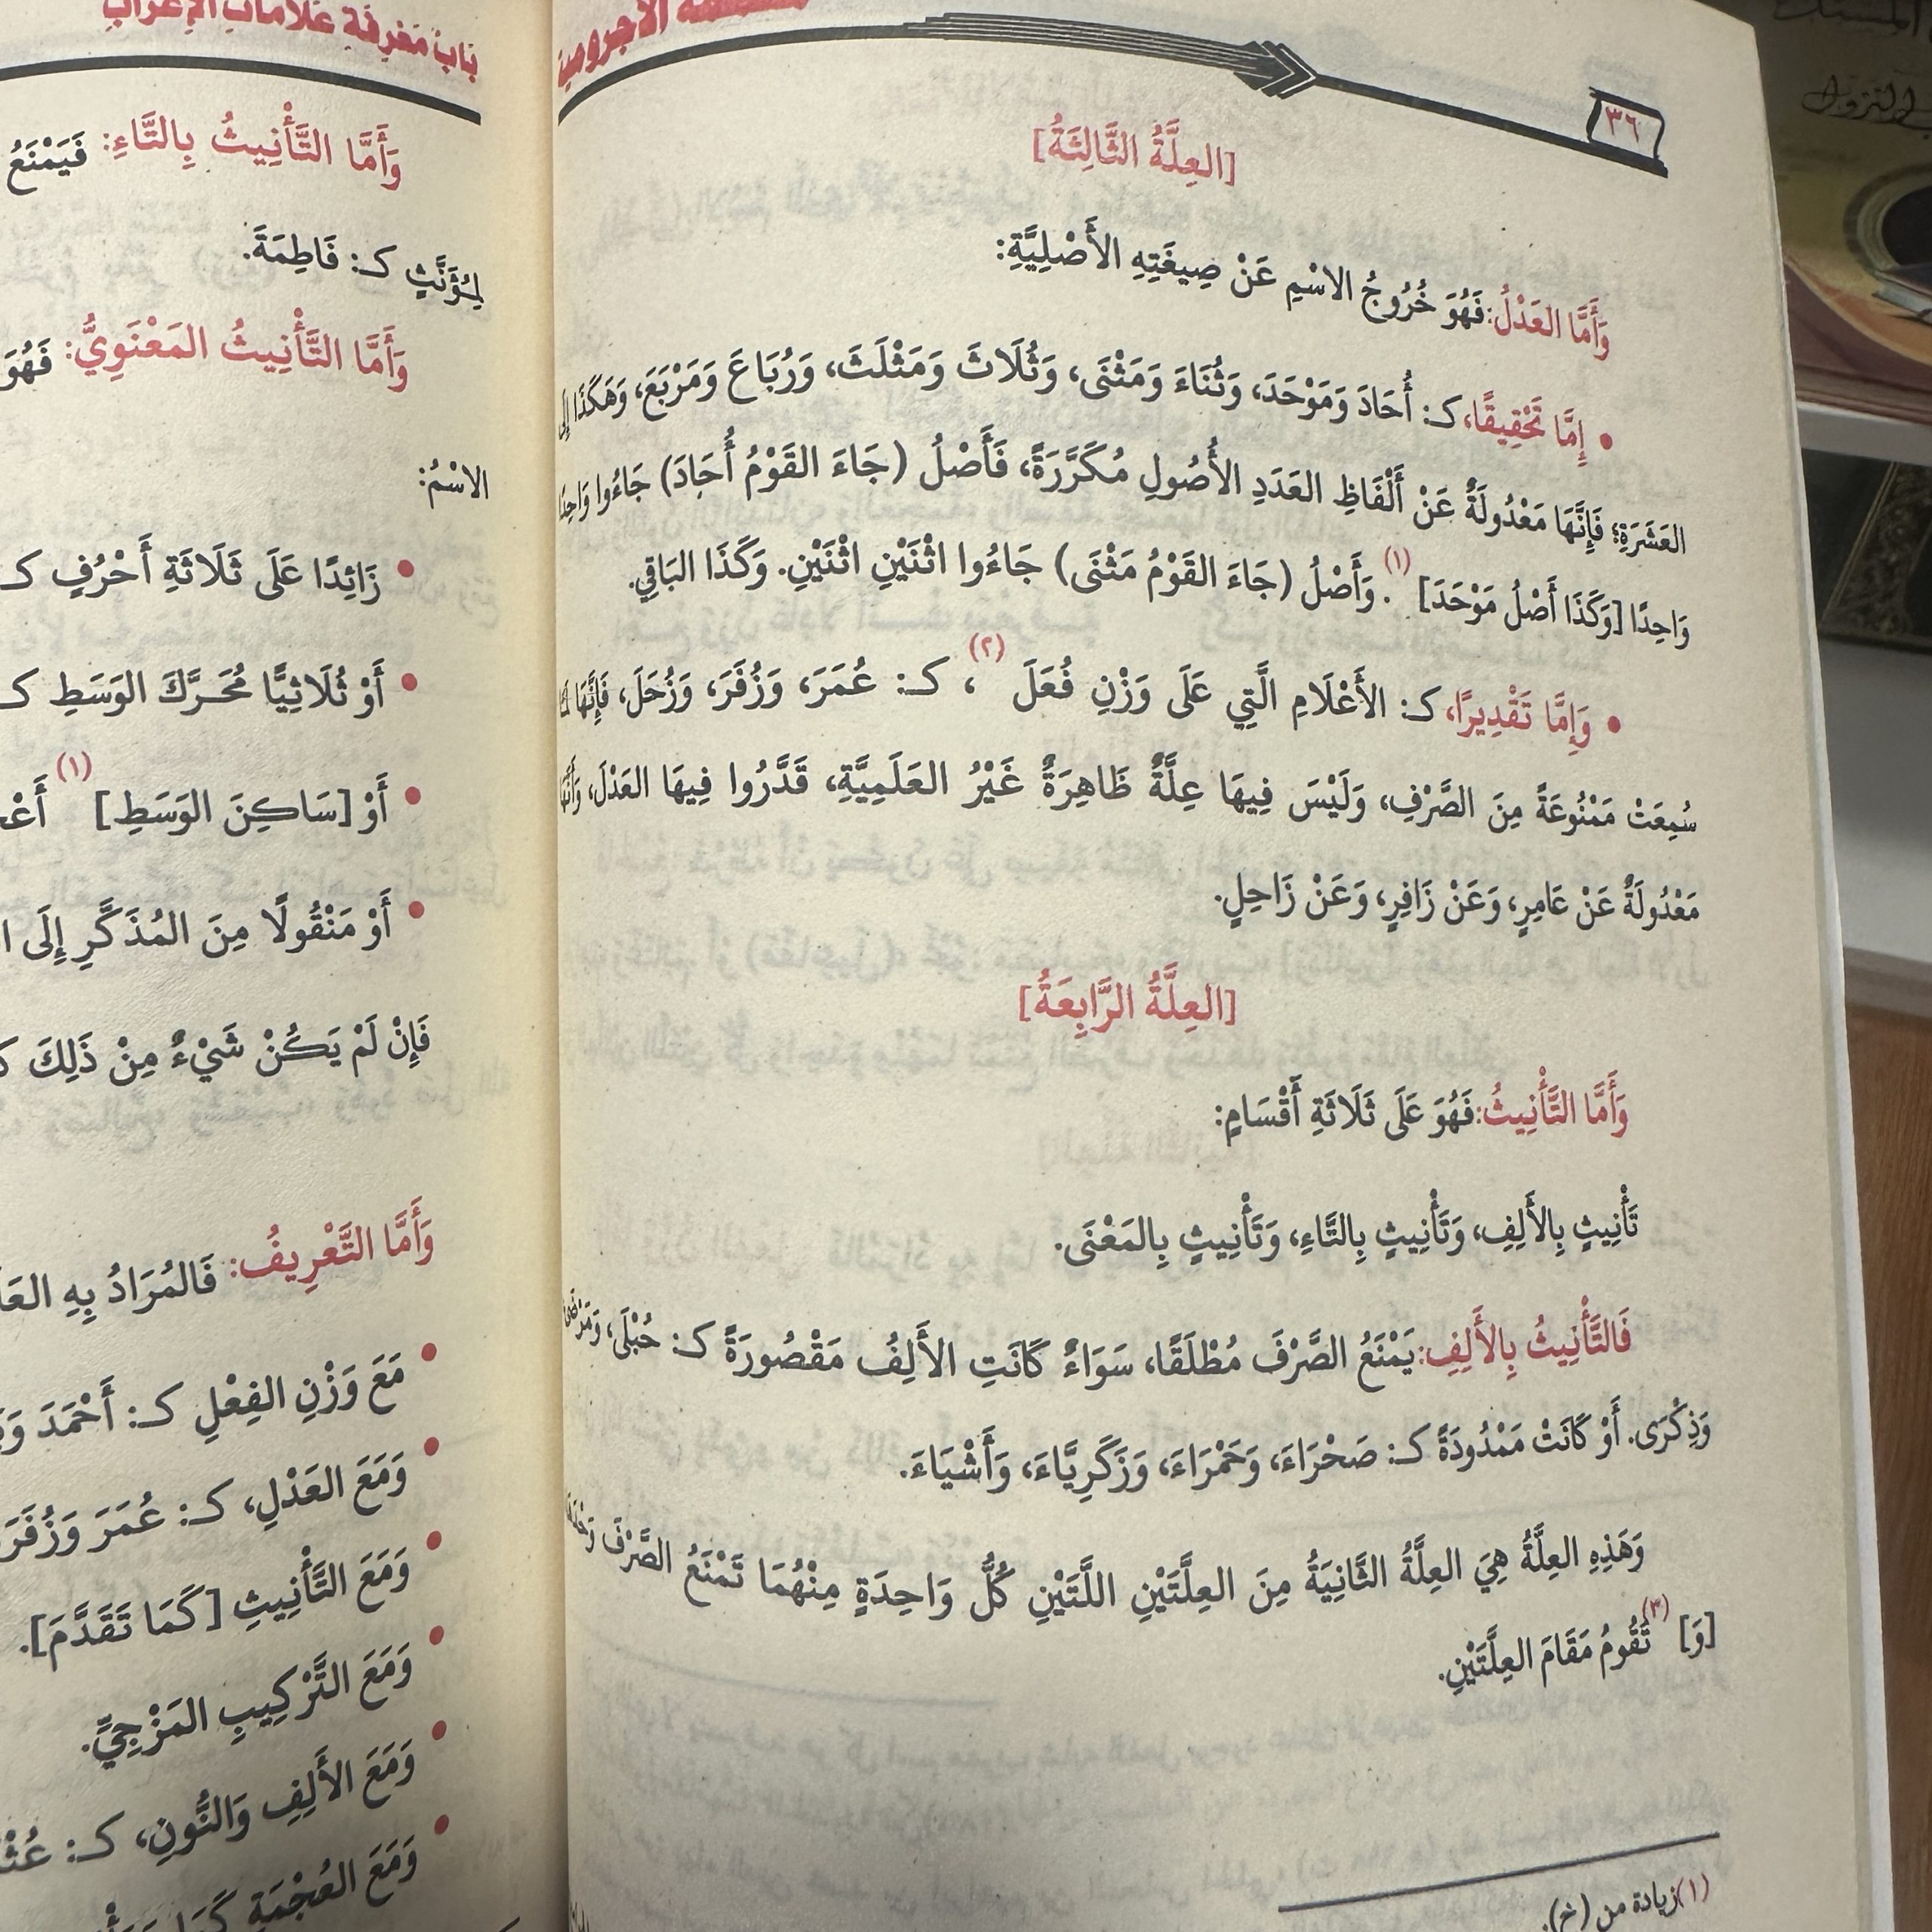 ٣٦
[العِلَّةُ الثَّالِثَةُ]
وَأَمَّا العَدْلُ: فَهُوَ خُرُوجُ الاسْمِ عَنْ صِيغَتِهِ الأَصْلِيَّةِ:
• إِمَّا تَحْقِيقًا، كـ: أُحَادَ وَمَوْحَدَ، وَثُنَاءَ وَمَثْنَى، وَثُلَاثَ وَمَثْلَثَ، وَرُبَاعَ وَمَرْبَعَ، وَهَكَذَا إِلَى
العَشَرَةِ؛ فَإِنَّهَا مَعْدُولَةٌ عَنْ أَلْفَاظِ العَدَدِ الأُصُولِ مُكَرَّرَةً، فَأَصْلُ (جَاءَ القَوْمُ أُحَادَ) جَاءُوا وَاحِدًا
وَاحِدًا [وَكَذَا أَصْلُ مَوْحَدَ] (١). وَأَصْلُ (جَاءَ القَوْمُ مَثْنَى) جَاءُوا اثْنَيْنِ اثْنَيْنِ. وَكَذَا البَاقِي.
• وَإِمَّا تَقْدِيرًا، كـ: الأَعْلَامِ الَّتِي عَلَى وَزْنِ فُعَلَ (٢)، كـ: عُمَرَ، وَزُفَرَ، وَزُحَلَ، فَإِنَّهَا لَمَّا
سُمِعَتْ مَمْنُوعَةً مِنَ الصَّرْفِ، وَلَيْسَ فِيهَا عِلَّةٌ ظَاهِرَةٌ غَيْرُ العَلَمِيَّةِ، قَدَّرُوا فِيهَا العَدْلَ، وَأَنَّهَا
مَعْدُولَةٌ عَنْ عَامِرٍ، وَعَنْ زَافِرٍ، وَعَنْ زَاحِلٍ.
[العِلَّةُ الرَّابِعَةُ]
وَأَمَّا التَّأْنِيثُ: فَهُوَ عَلَى ثَلَاثَةِ أَقْسَامٍ:
تَأْنِيثٍ بِالأَلِفِ، وَتَأْنِيثٍ بِالتَّاءِ، وَتَأْنِيثٍ بِالمَعْنَى.
فَالتَّأْنِيثُ بِالأَلِفِ: يَمْنَعُ الصَّرْفَ مُطْلَقًا، سَوَاءٌ كَانَتِ الأَلِفُ مَقْصُورَةً كـ: حُبْلَى، وَمَرْضَى
وَذِكْرَى. أَوْ كَانَتْ مَمْدُودَةً كـ: صَحْرَاءَ، وَحَمْرَاءَ، وَزَكَرِيَّاءَ، وَأَشْيَاءَ.
وَهَذِهِ العِلَّةُ هِيَ العِلَّةُ الثَّانِيَةُ مِنَ العِلَّتَيْنِ اللَّتَيْنِ كُلُّ وَاحِدَةٍ مِنْهُمَا تَمْنَعُ الصَّرْفَ وَحْدَهَا
[وَ] (٣) تَقُومُ مَقَامَ العِلَّتَيْنِ.
(١) زيادة من (خ).
بَابُ مَعْرِفَةِ عَلَامَاتِ الإِعْرَابِ
وَأَمَّا التَّأْنِيثُ بِالتَّاءِ: فَيَمْنَعُ
لِمُؤَنَّثٍ كـ: فَاطِمَةَ.
وَأَمَّا التَّأْنِيثُ المَعْنَوِيُّ: فَهُوَ
الاسْمُ:
• زَائِدًا عَلَى ثَلَاثَةِ أَحْرُفٍ كـ
• أَوْ ثُلَاثِيًّا مُحَرَّكَ الوَسَطِ كـ
• أَوْ [سَاكِنَ الوَسَطِ] (١)
• أَوْ مَنْقُولًا مِنَ المُذَكَّرِ إِلَى
فَإِنْ لَمْ يَكُنْ شَيْءٌ مِنْ ذَلِكَ
وَأَمَّا التَّعْرِيفُ: فَالمُرَادُ بِهِ
• مَعَ وَزْنِ الفِعْلِ كـ: أَحْمَدَ
• وَمَعَ العَدْلِ، كـ: عُمَرَ وَزُفَرَ
• وَمَعَ التَّأْنِيثِ [كَمَا تَقَدَّمَ].
• وَمَعَ التَّرْكِيبِ المَزْجِيِّ.
• وَمَعَ الأَلِفِ وَالنُّونِ، كـ:
• وَمَعَ العُجْمَةِ